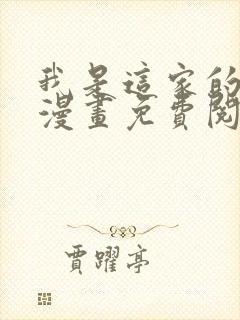 我是這家的
漫畫免費閱
賈躍亭